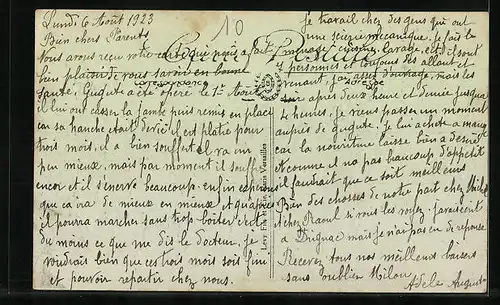 10
Lundi 6 Août 1923
Bien chers Parents
Vous avons reçu votre carte qui nous a fait
bien plaisir de vous savoir en bonne
santé, Guguste a été opéré le 1er Août
il lui ont casser la jambe puis remis en place
car sa hanche était il est platré pour
trois mois, il a bien souffert il va un
peu mieux, mais par moment il souffre
encor et il s'énerve beaucoup. enfin espérons
que ça ira de mieux en mieux. et qu'après
il pourra marcher sans trop boiter c'est
du moins ce que me dis le docteur, je
voudrais bien que ces trois mois soit fini
et pouvoir repartir chez nous.
Je travail chez des gens qui ont
un scierie mécanique. Je fais le
ménage cuisine, lavage, etc il sont
7 personnes et toujours des allant et
venant j'ai assez d'ouvrage, mais les
jour après deux heure et demie jusqua
4 heures, je viens passer un moment
auprès de guguste, je lui achete a manger
car la nourriture laisse bien a désirer
et comme il na pas beaucoup d'appétit
il faudrait que ce soit meilleur
Bien des choses de notre part chez Michel
et chez Raoul si vous les voyez. j'avais écrit
a Dignac mais je n'ai pas eu de réponse.
Recevez tous nos meilleurs baisers
sans oublier Milou.
Adele Auguste